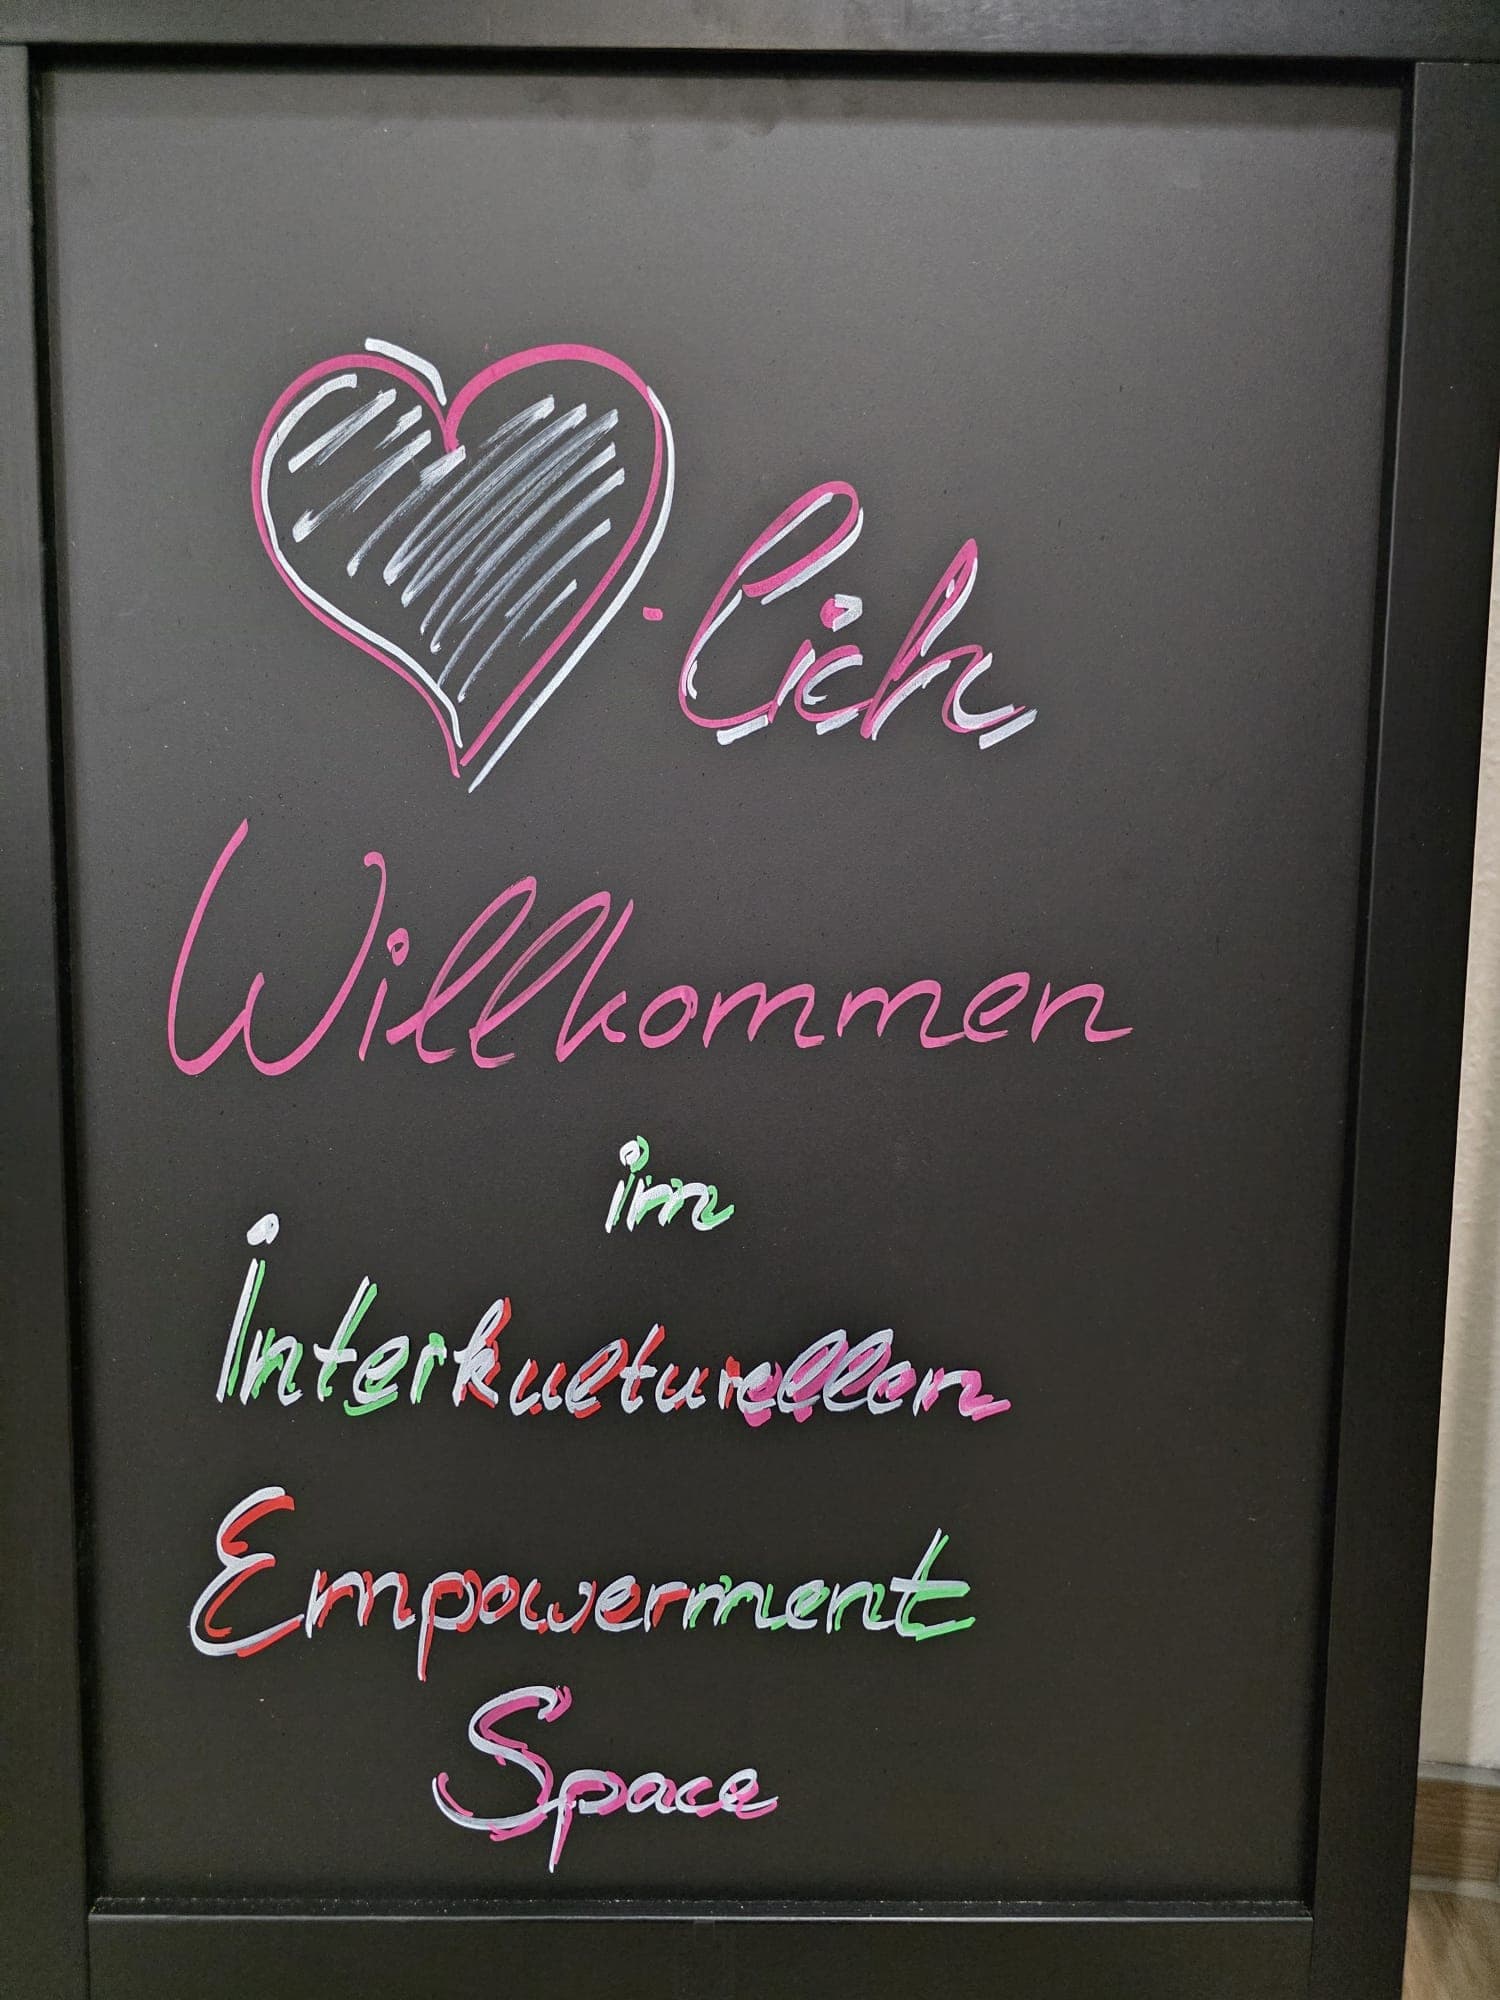 -lich
Willkommen
im
Interkulturellen
Empowerment
Space